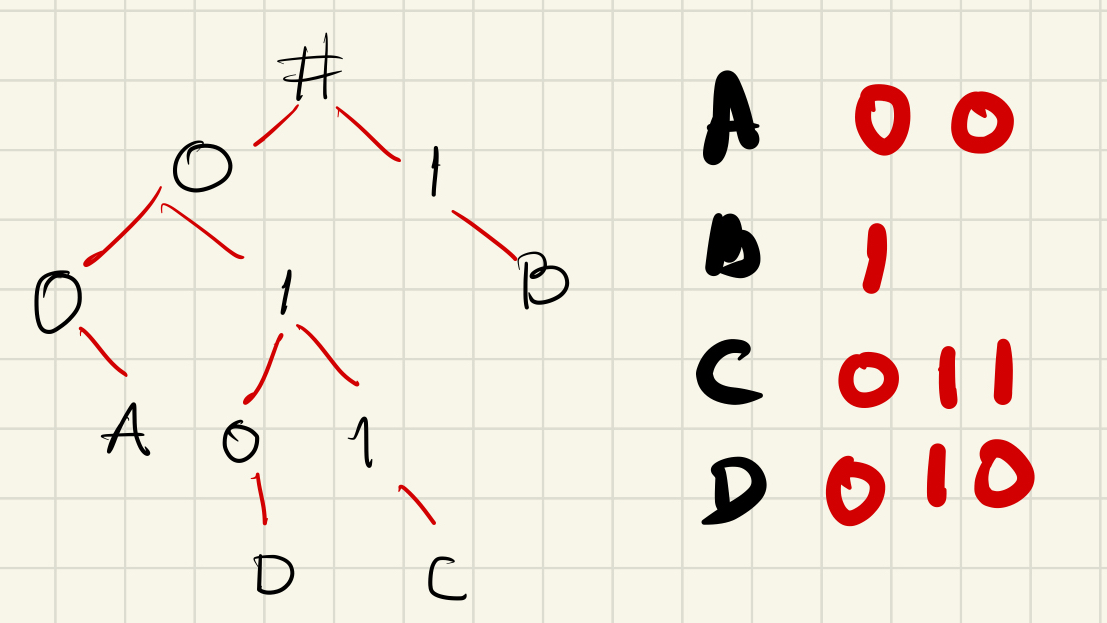 #
0 1
0 1 B
A 0 1
D C
A 0 0
B 1
C 0 1 1
D 0 1 0